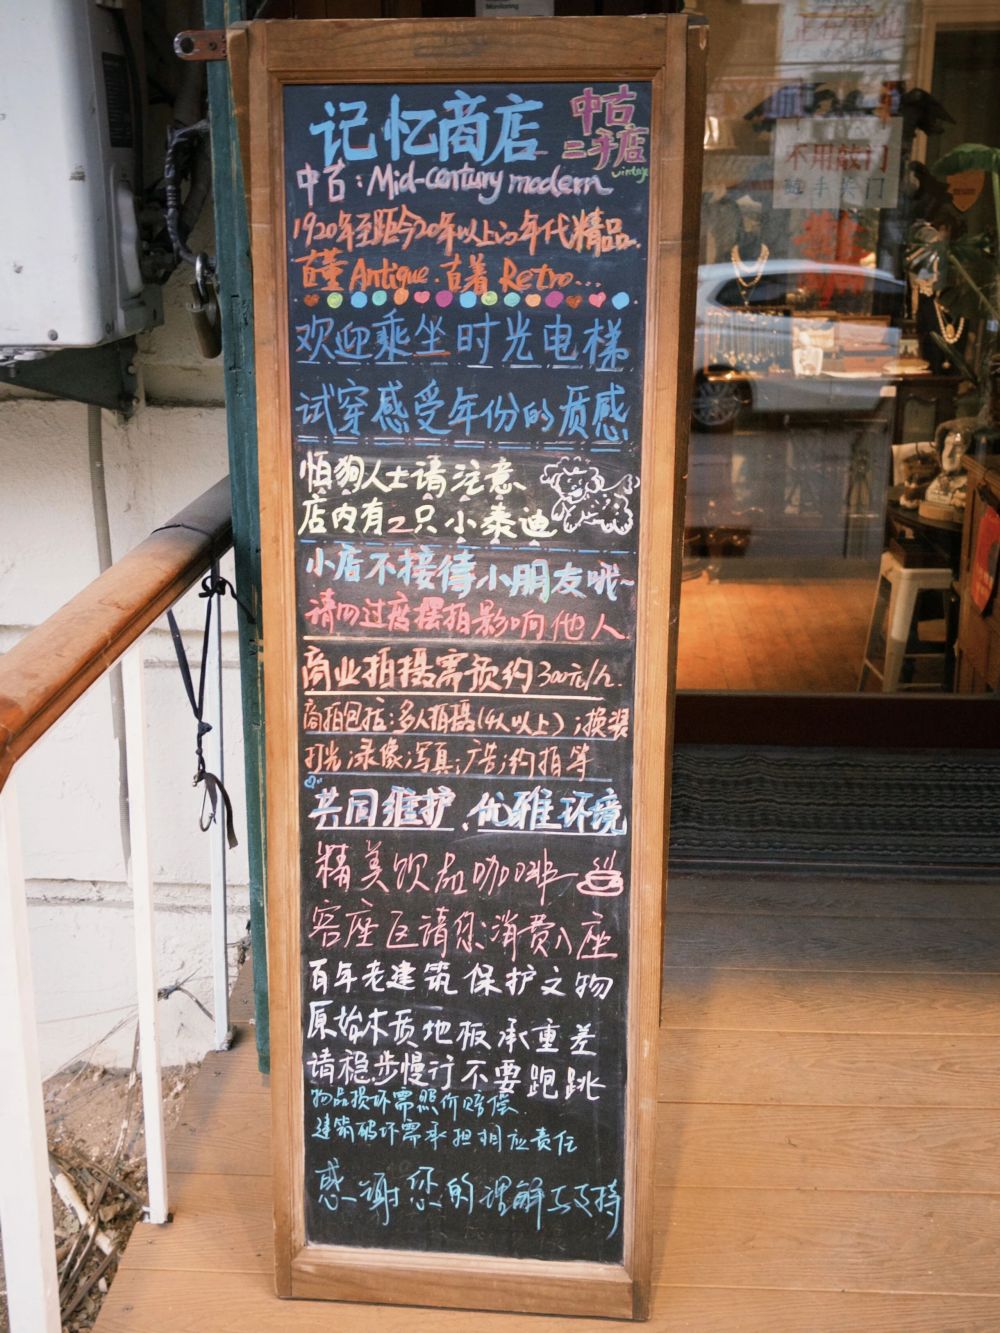 Monitoring
记忆商店
中古
二手店
vintage
中古：Mid-century modern
1920年至距今20年以上的年代精品.
古董 Antique. 古着 Retro...
欢迎乘坐时光电梯
试穿感受年份的质感
怕狗人士请注意、
店内有2只小泰迪
小店不接待小朋友哦~
请勿过度摆拍影响他人
商业拍摄需预约300元/h.
商拍包括：多人拍摄(4人以上)；换装
打光；录像；写真；广告；约拍等
共同维护、优雅环境
精美饮品咖啡
客座区请您消费入座
百年老建筑保护文物
原始木质地板承重差
请稳步慢行不要跑跳
物品损坏需照价赔偿
建筑破坏需承担相应责任
感谢您的理解与支持
正在营业
不用敲门
随手关门